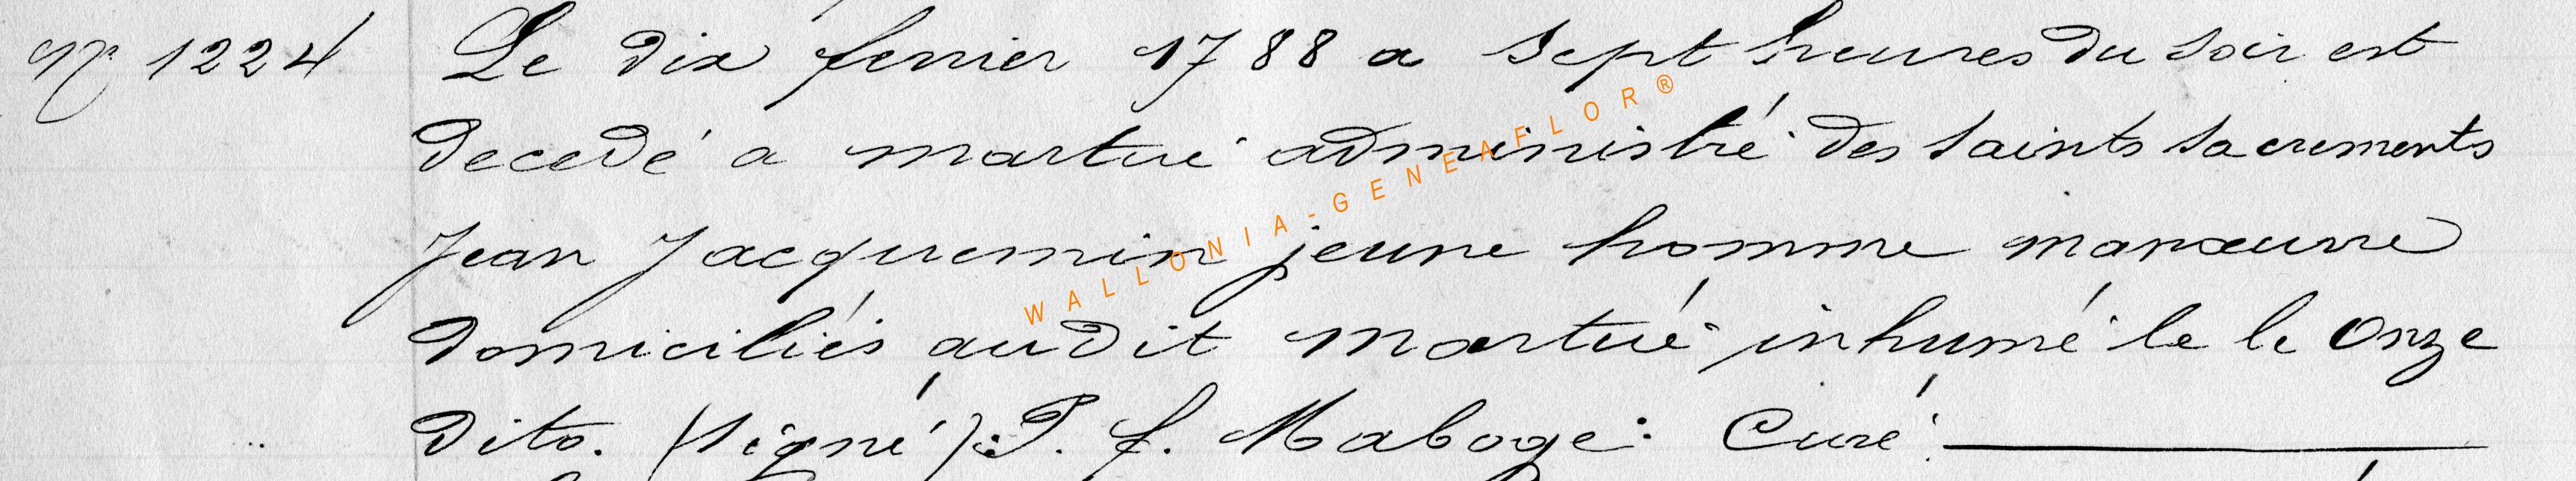 N° 1224 Le dix fevrier 1788 a sept heures du soir est
decedé a martué administré des saints sacrements
Jean Jacquemin jeune homme manœuvre
domiciliés audit martué inhumé le le onze
dito. (signé): P. f. Maboge: Curé
WALLONIA-GENEAFLOR®